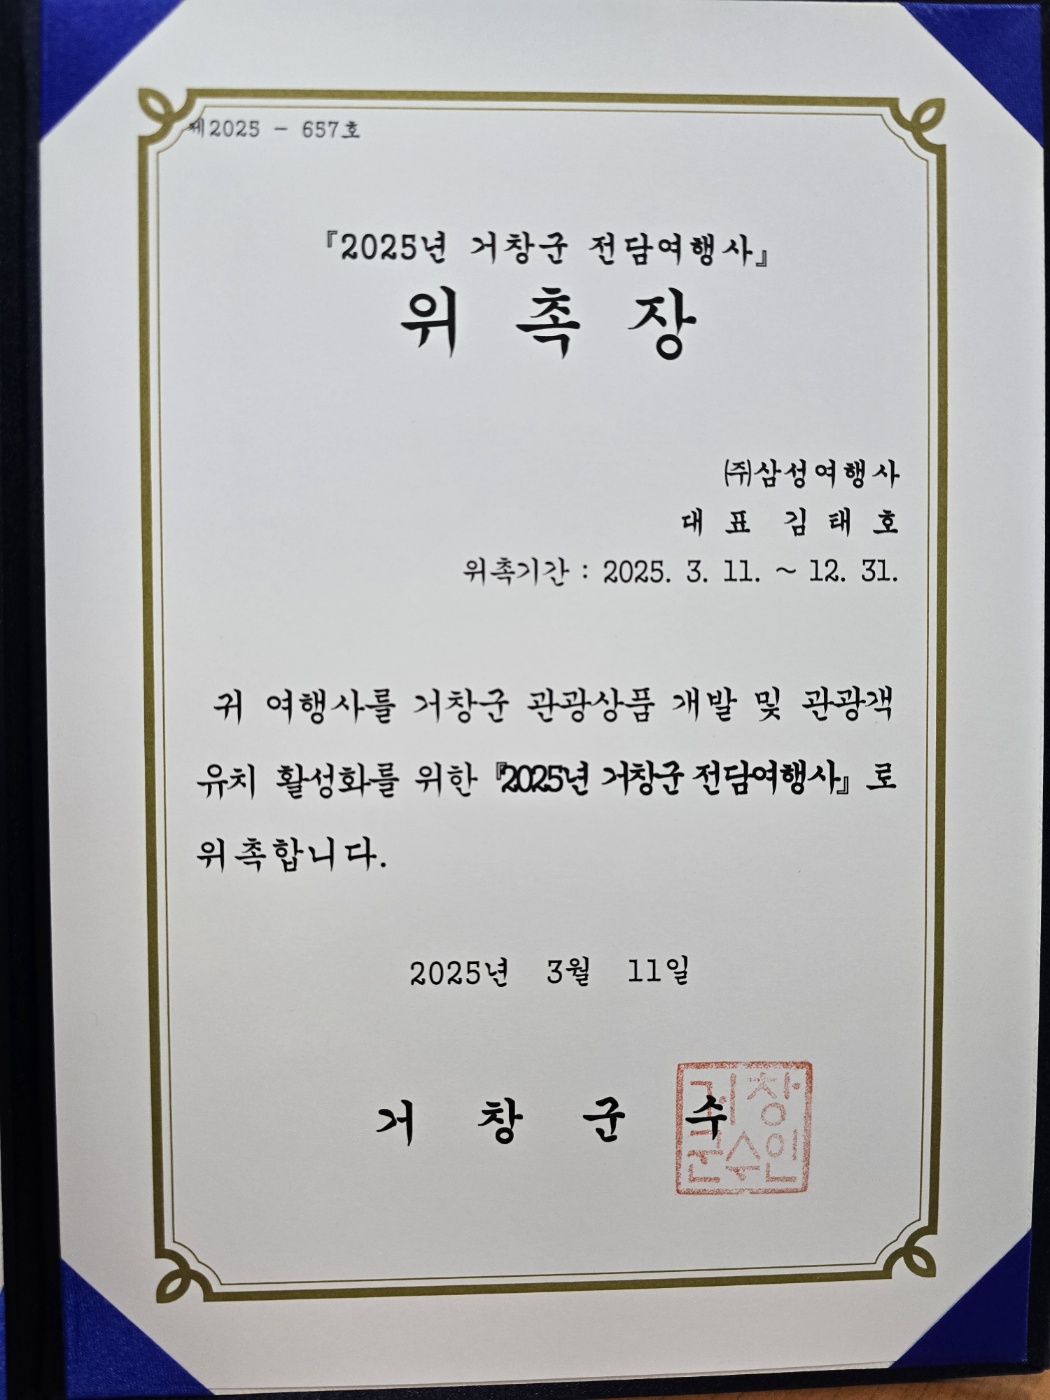 제2025 - 657호
『2025년 거창군 전담여행사』
위 촉 장
㈜삼성여행사
대 표 김 태 호
위촉기간 : 2025. 3. 11. ~ 12. 31.
귀 여행사를 거창군 관광상품 개발 및 관광객
유치 활성화를 위한 『2025년 거창군 전담여행사』로
위촉합니다.
2025년 3월 11일
거 창 군 수
거창
군수인